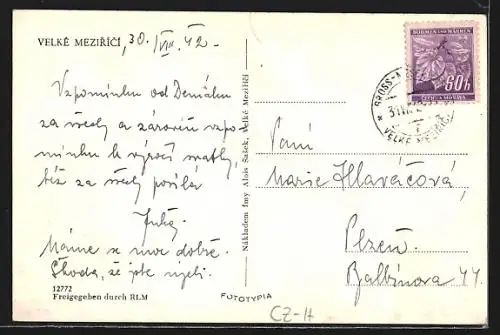 VELKÉ MEZIŘÍČÍ, 30. VIII. 42 -
Vzpomínku od
za všecky a zároveň vzpo-
mínku k výročí svatby,
též za všecky posílá
Máme se moc dobře.
Škoda, že jste ujeli.
12772
Freigegeben durch RLM
Nákladem fmy Alois Sašek, Velké Meziříčí
FOTOTYPIA
BÖHMEN UND MÄHREN
60h
ČECHY A MORAVA
GROSS-
VELKÉ MEZIŘÍČÍ
Paní
Marie Hlaváčová,
Plzeň
Balbínova 44.
CZ-H